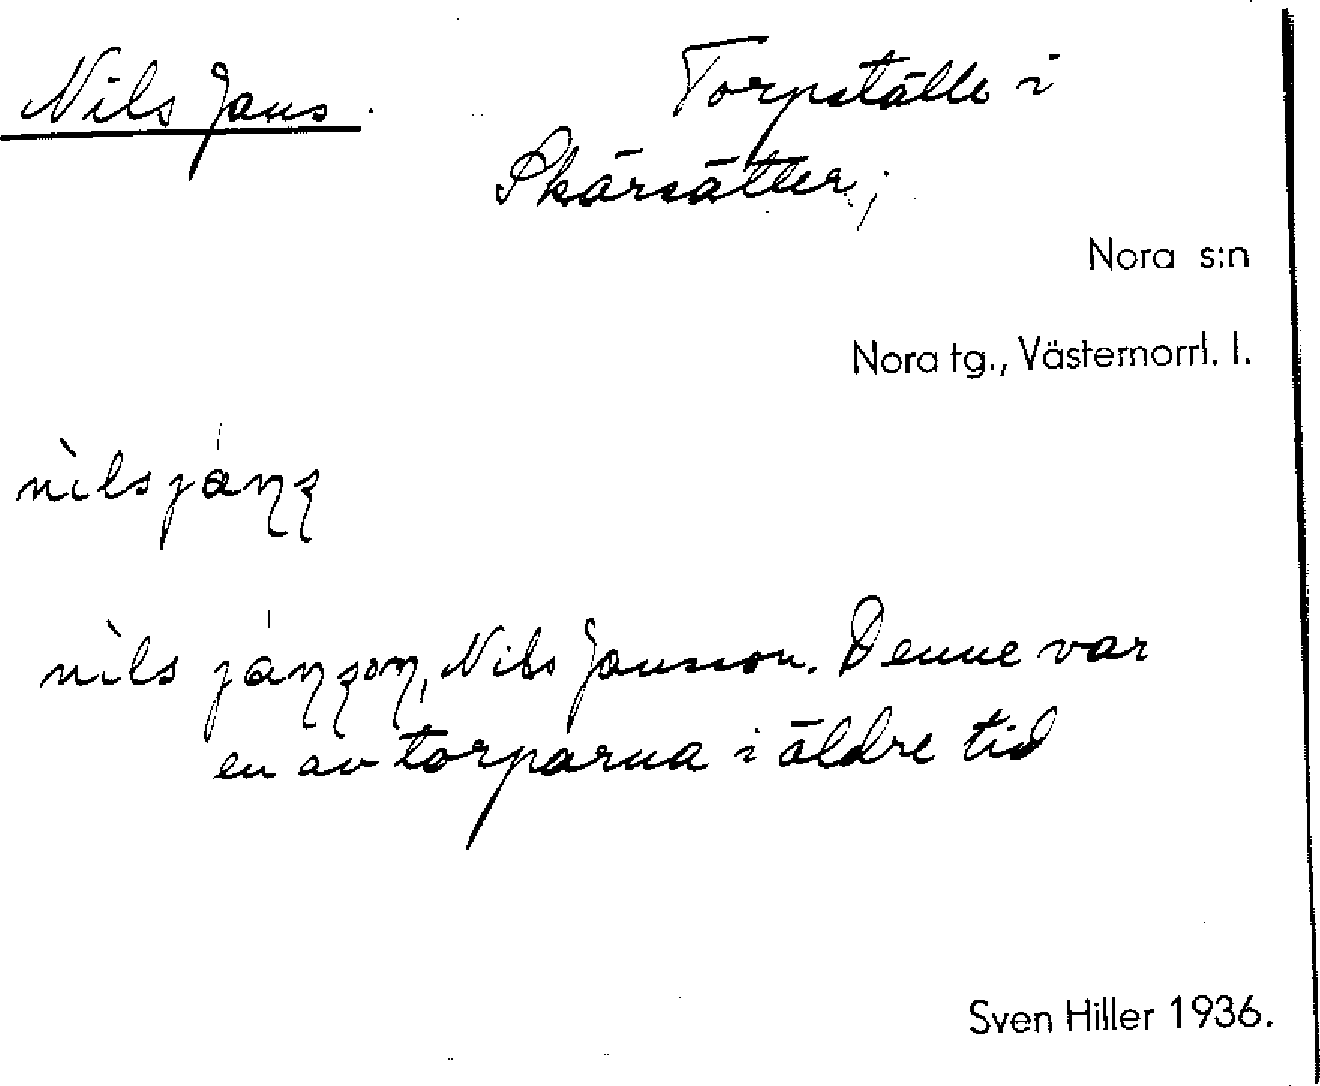 Nils Jans.
Torpställe i
Skärsätter;
Nora s:n
Nora tg., Västernorrl. l.
nìls jánʂ
nìls jánʂoɳ, Nils Jansson. Denne var
en av torparna i äldre tid
Sven Hiller 1936.